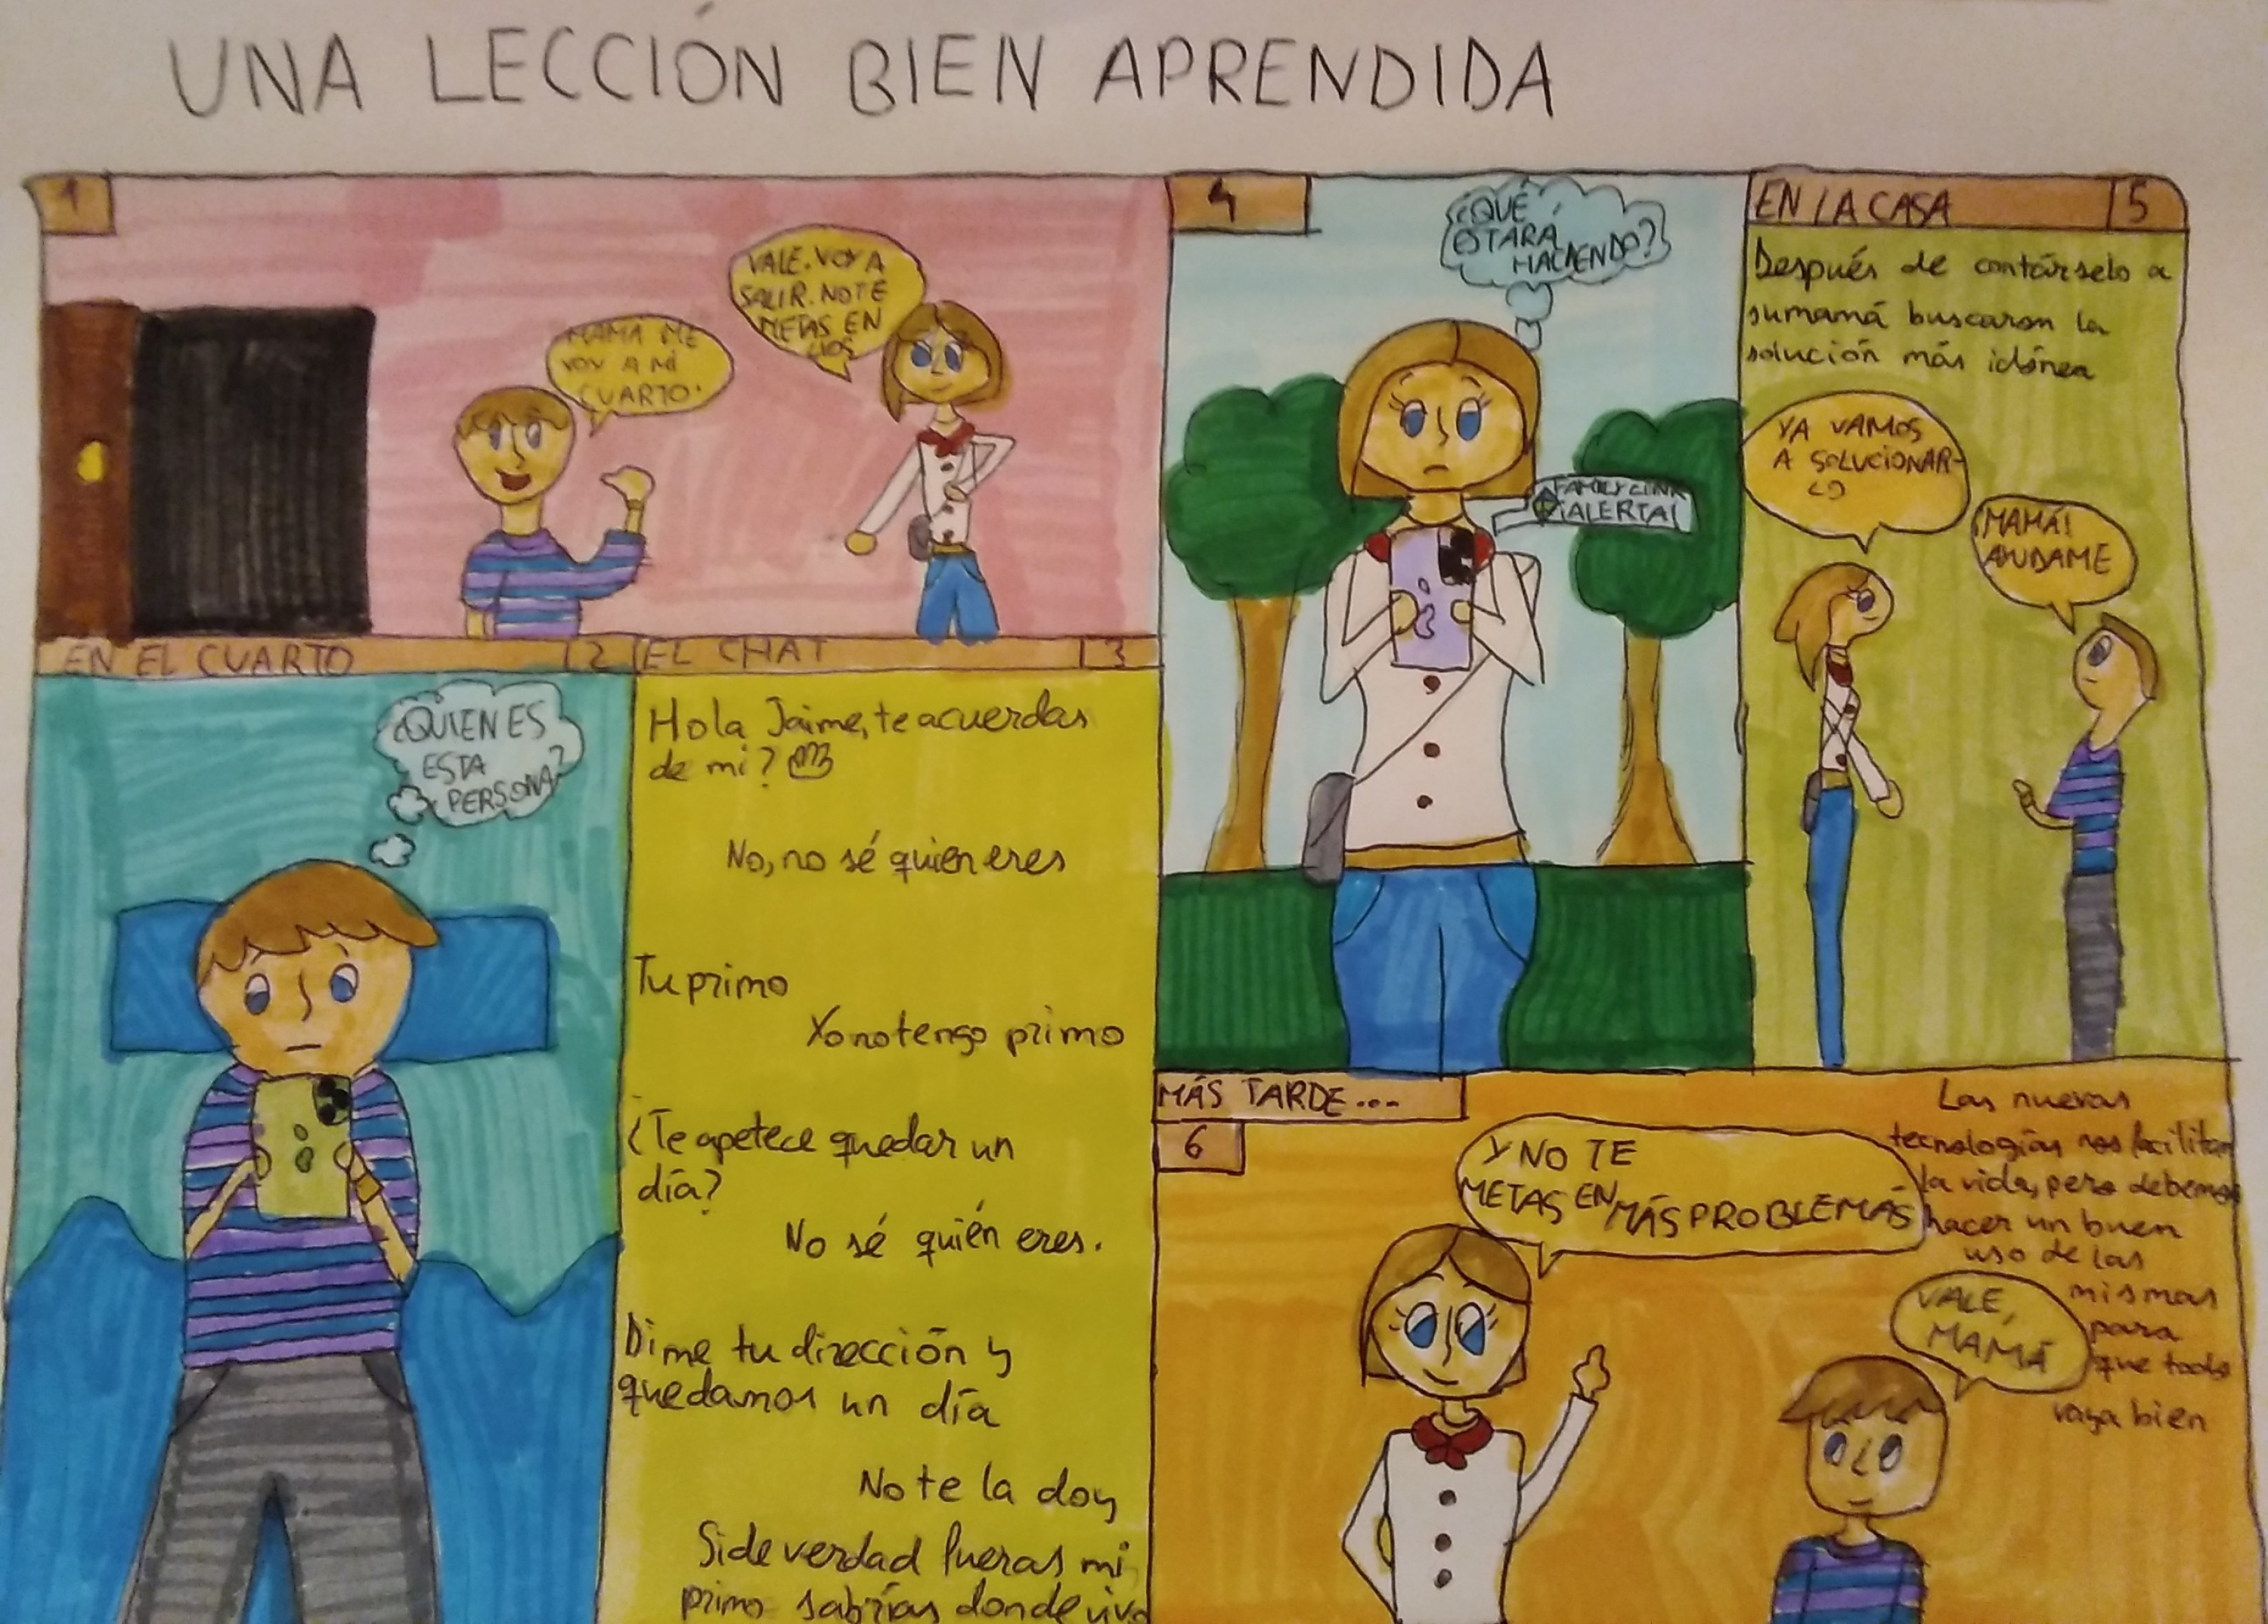 UNA LECCIÓN BIEN APRENDIDA
1
MAMÁ ME
VOY A MI
CUARTO.
VALE. VOY A
SALIR. NO TE
METAS EN
LÍOS
EN EL CUARTO
2
¿QUIEN ES
ESTA
PERSONA?
EL CHAT
3
Hola Jaime, te acuerdas
de mi?
No, no sé quien eres
Tu primo
Yo no tengo primo
¿Te apetece quedar un
día?
No sé quién eres.
Dime tu dirección y
quedamos un día
No te la doy
Si de verdad fueras mi
primo sabrías donde vivo
4
¿QUÉ
ESTARÁ
HACIENDO?
FAMILY LINK
¡ALERTA!
EN LA CASA
5
Después de contárselo a
su mamá buscaron la
solución más idónea
YA VAMOS
A SOLUCIONAR-
LO
¡MAMÁ!
AYUDAME
MÁS TARDE...
6
Y NO TE
METAS EN MÁS PROBLEMAS
Las nuevas
tecnologías nos facilitan
la vida, pero debemos
hacer un buen
uso de las
mismas
para
que todo
vaya bien
VALE,
MAMÁ